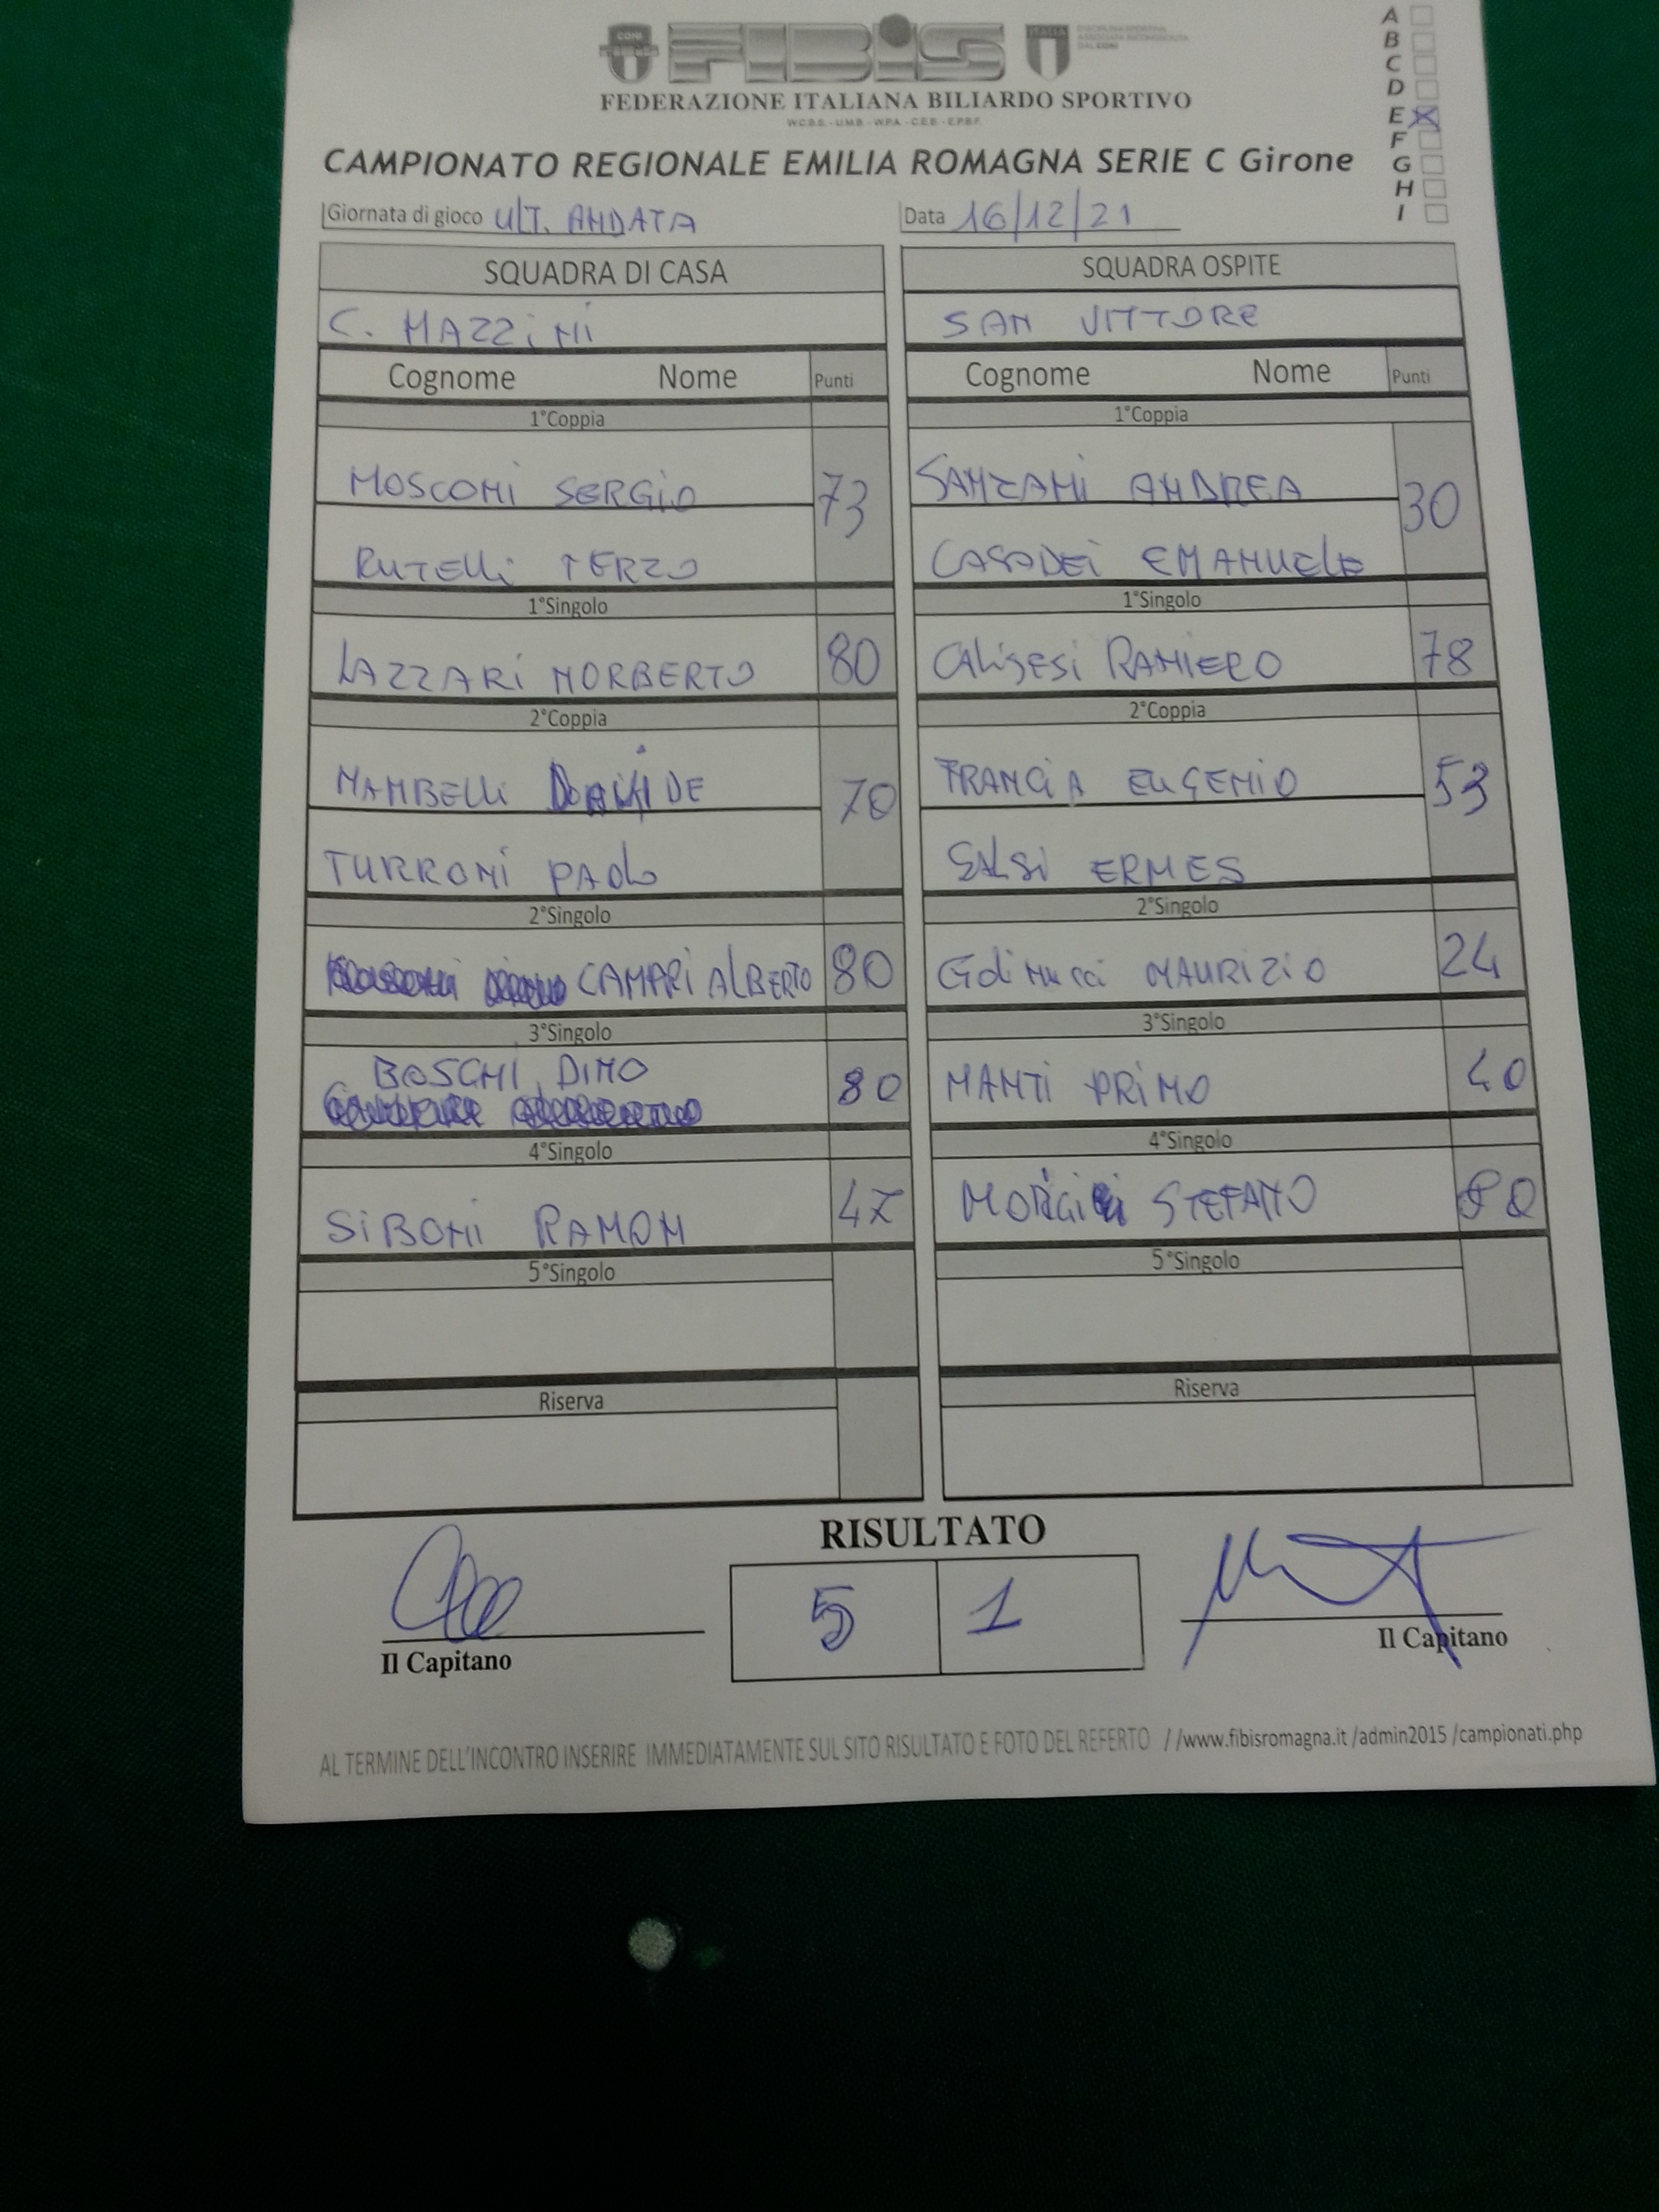 CONI FIBiS ITALIA DISCIPLINA SPORTIVA
ASSOCIATA RICONOSCIUTA
DAL CONI
FEDERAZIONE ITALIANA BILIARDO SPORTIVO
W.C.B.S. - U.M.B. - W.P.A. - C.E.B. - E.P.B.F.
A
B
C
D
E X
F
G
H
I
CAMPIONATO REGIONALE EMILIA ROMAGNA SERIE C Girone
Giornata di gioco ULT. ANDATA Data 16/12/21
SQUADRA DI CASA SQUADRA OSPITE
C. MAZZiNi SAN VITTORE
Cognome Nome Punti Cognome Nome Punti
1°Coppia 1°Coppia
MOSCONi SERGiO 73 SANZANi ANDREA 30
RUTELLi TERZO CASADEi EMANUELE
1°Singolo 1°Singolo
LAZZARi NORBERTO 80 CALiSESi RANIERO 78
2°Coppia 2°Coppia
MAMBELLi DE 70 FRANCiA EUGENiO 53
TURRONi PAOLO SALSi ERMES
2°Singolo 2°Singolo
CAMARi ALBERTO 80 MAURIZiO 24
3°Singolo 3°Singolo
BOSCHI DINO 80 MANTi PRiMO 40
4°Singolo 4°Singolo
SiBONi RAMON 47 STEFANO 80
5°Singolo 5°Singolo
Riserva Riserva
RISULTATO
5 1
Il Capitano Il Capitano
AL TERMINE DELL'INCONTRO INSERIRE IMMEDIATAMENTE SUL SITO RISULTATO E FOTO DEL REFERTO //www.fibisromagna.it /admin2015 /campionati.php